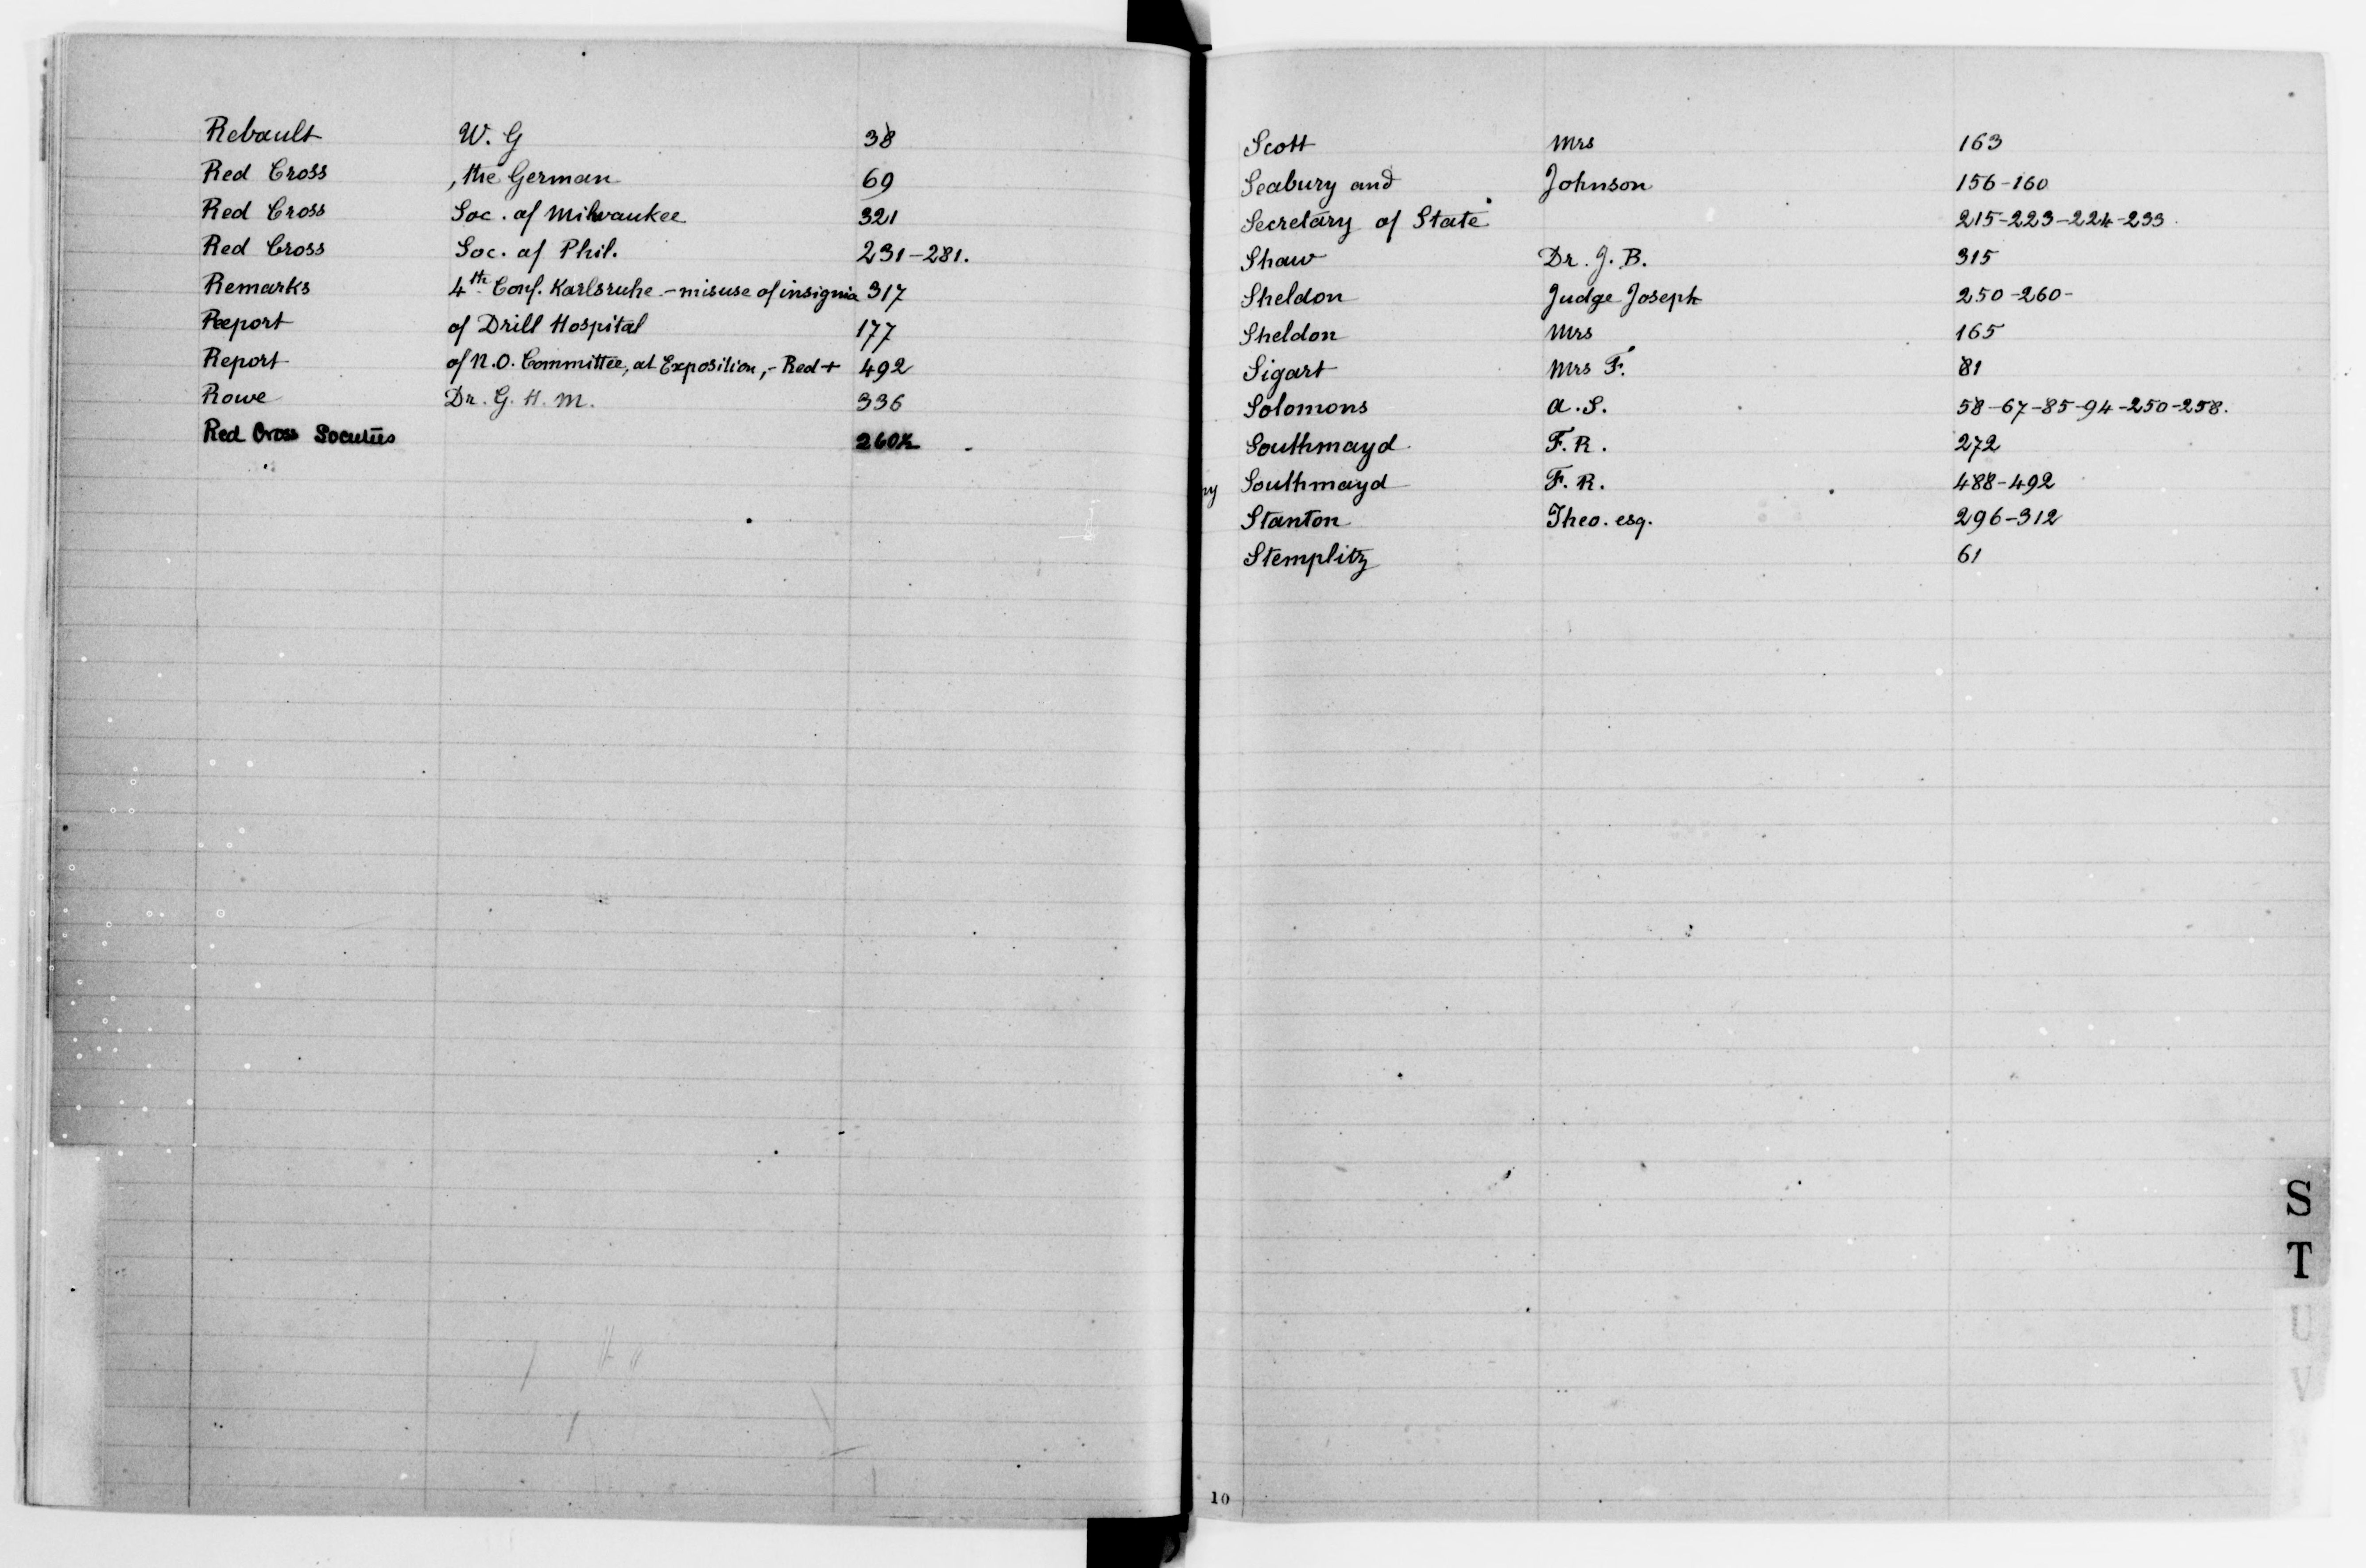 Rebault W. G 38
Red Cross , the German 69
Red Cross Soc. of Milwaukee 321
Red Cross Soc. of Phil. 231-281.
Remarks 4th Conf. Karlsruhe - misuse of insignia 317
Report of Drill Hospital 177
Report of N.O. Committee, at Exposition, - Red + 492
Rowe Dr. G. H. M. 336
Red Cross Societies
Scott Mrs 163
Seabury and Johnson 156-160
Secretary of State 215-223-224-233.
Shaw Dr. J. B. 315
Sheldon Judge Joseph 250-260-
Sheldon Mrs 165
Sigart Mrs F. 81
Solomons A. S. 58-67-85-94-250-258.
Southmayd F. R. 272
ny Southmayd F. R. 488-492
Stanton Theo. esq. 296-312
Stemplitz 61
S
T
U
V
10